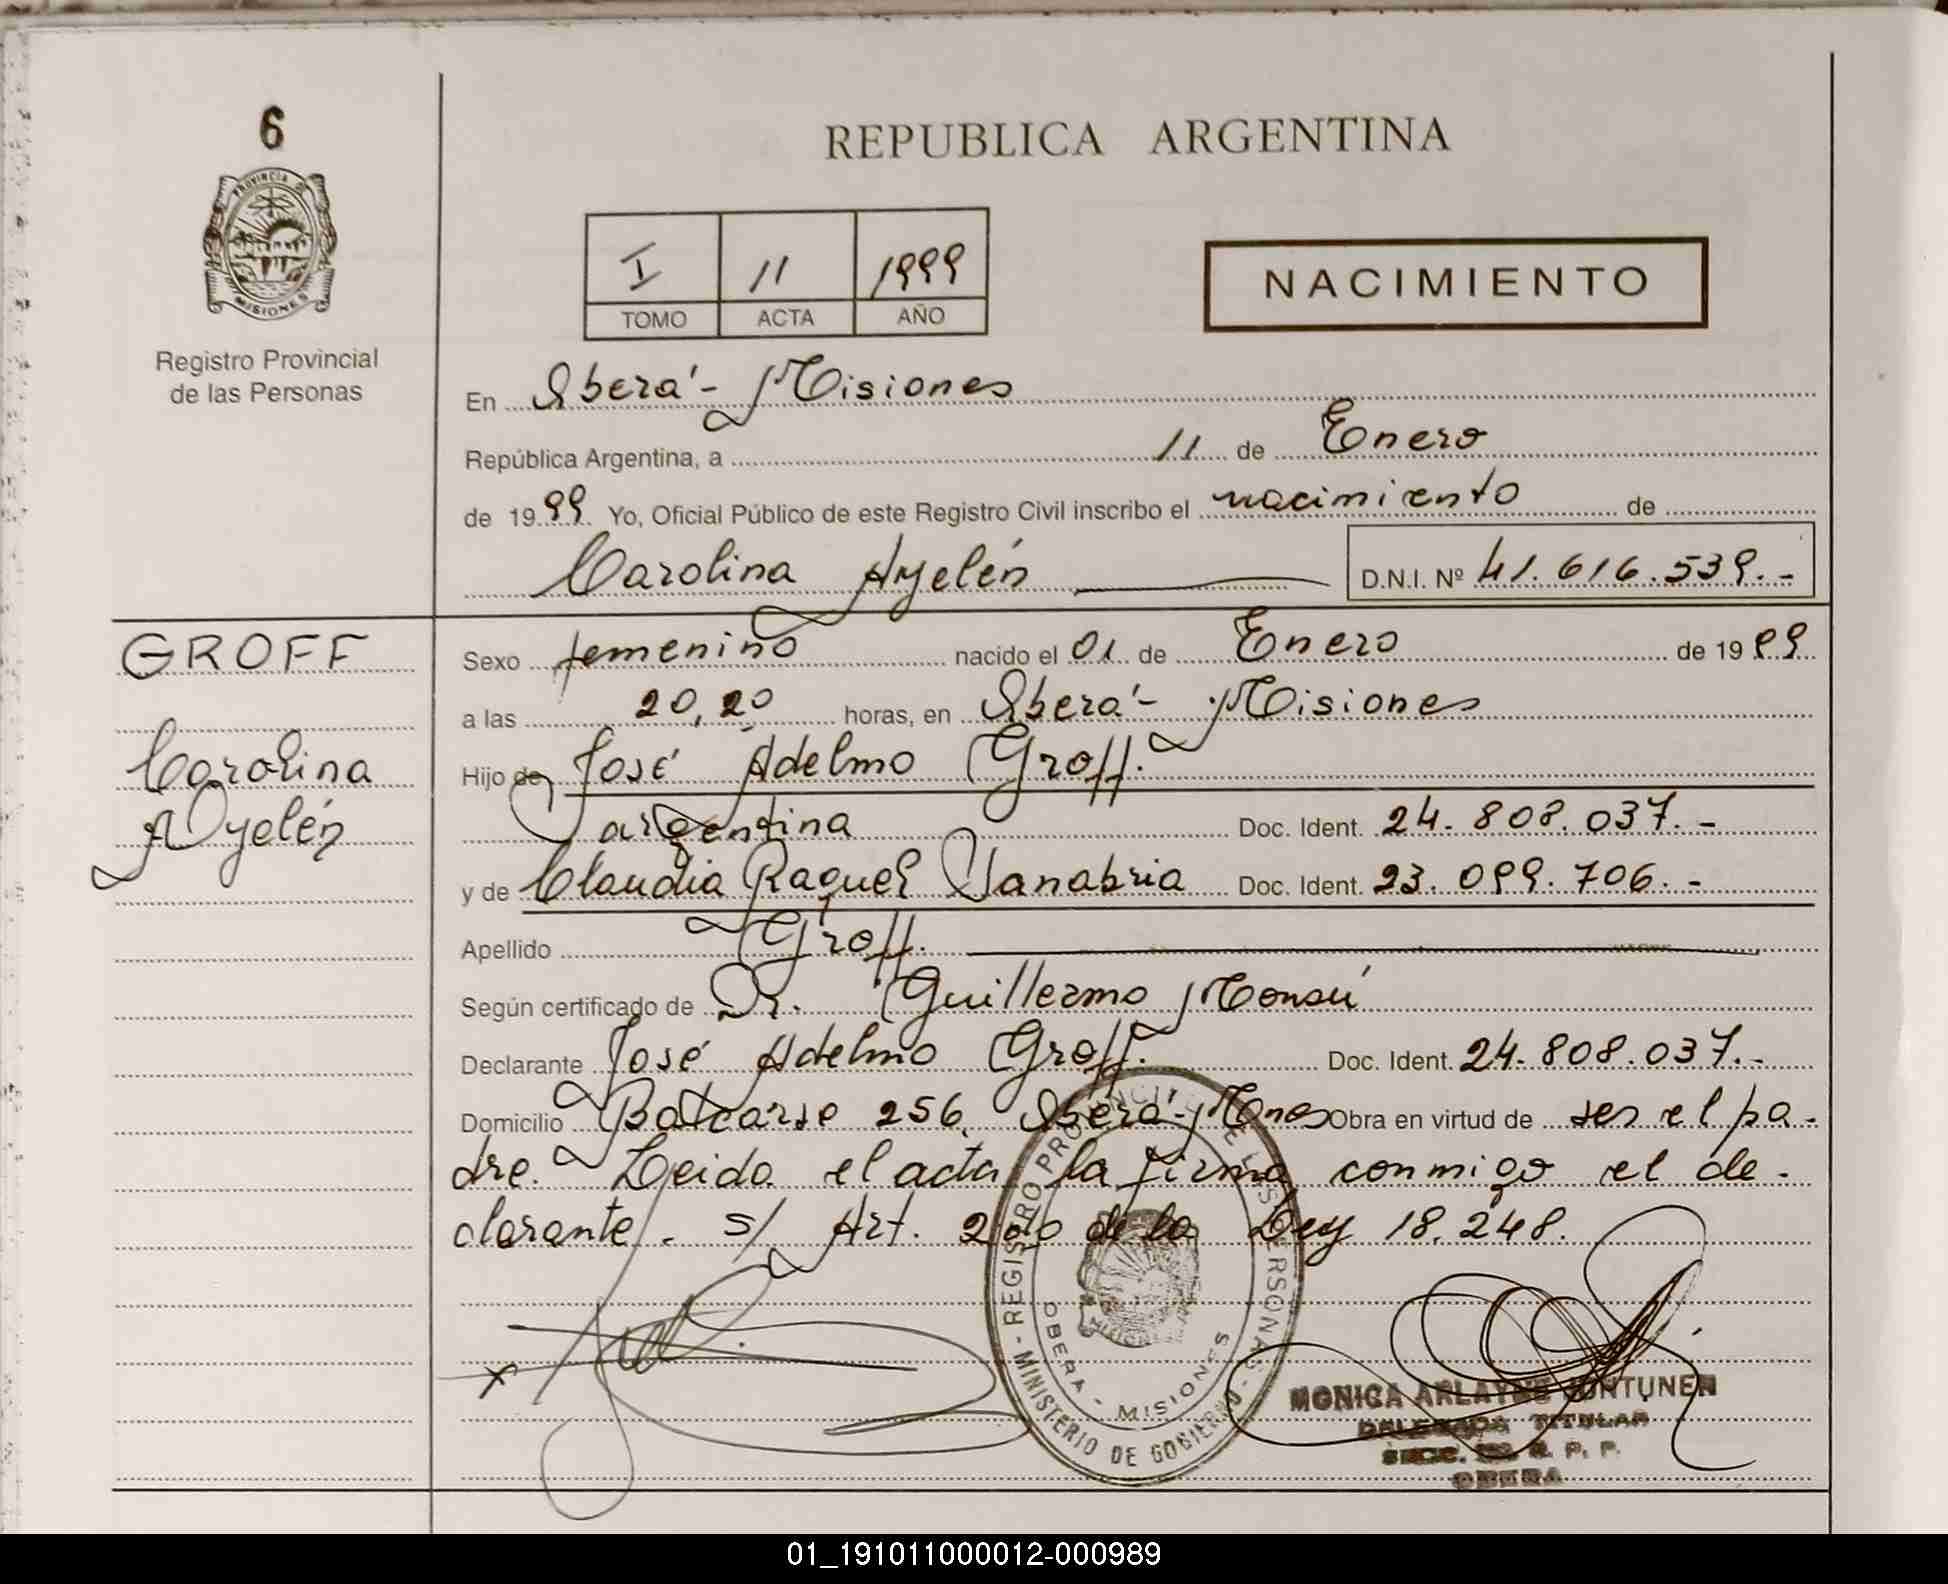 6
PROVINCIA DE
MISIONES
Registro Provincial
de las Personas
REPUBLICA ARGENTINA
I 11 1999
TOMO ACTA AÑO
NACIMIENTO
En Oberá - Misiones
República Argentina, a 11 de Enero
de 1999 Yo, Oficial Público de este Registro Civil inscribo el nacimiento de
Carolina Ayelén D.N.I. Nº 41.616.539.-
GROFF
Carolina
Ayelén
Sexo femenino nacido el 01 de Enero de 1999
a las 20,20 horas, en Oberá - Misiones
Hijo de José Adelmo Groff.
argentina Doc. Ident. 24.808.037.-
y de Claudia Raquel Sanabria Doc. Ident. 23.099.706.-
Apellido Groff.
Según certificado de Dr. Guillermo Monsú
Declarante José Adelmo Groff. Doc. Ident. 24.808.037.-
Domicilio Balcarse 256, Oberá - Mnes Obra en virtud de ser el pa-
dre. Leida el acta la firma conmigo el de-
clarante. s/ Art. 2do de la Ley 18.248.
- REGISTRO PROVINCIAL DE LAS PERSONAS -
MINISTERIO DE GOBIERNO
OBERA - MISIONES
MONICA ARLAYNE JUNTUNEN
DELEGADA TITULAR
R. P. P.
OBERA
01_191011000012-000989